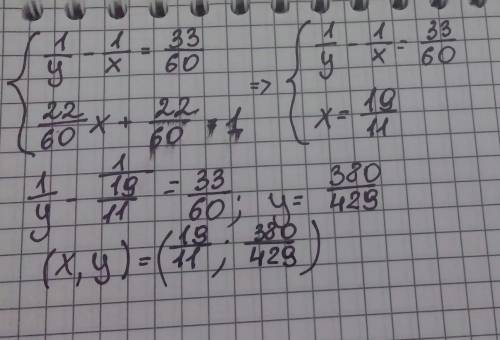 { 1/y - 1/x = 33/60
22/60 x + 22/60 = 1
=> { 1/y - 1/x = 33/60
x = 19/11
1/y - 1/(19/11) = 33/60; y = 380/429
(x, y) = (19/11; 380/429)